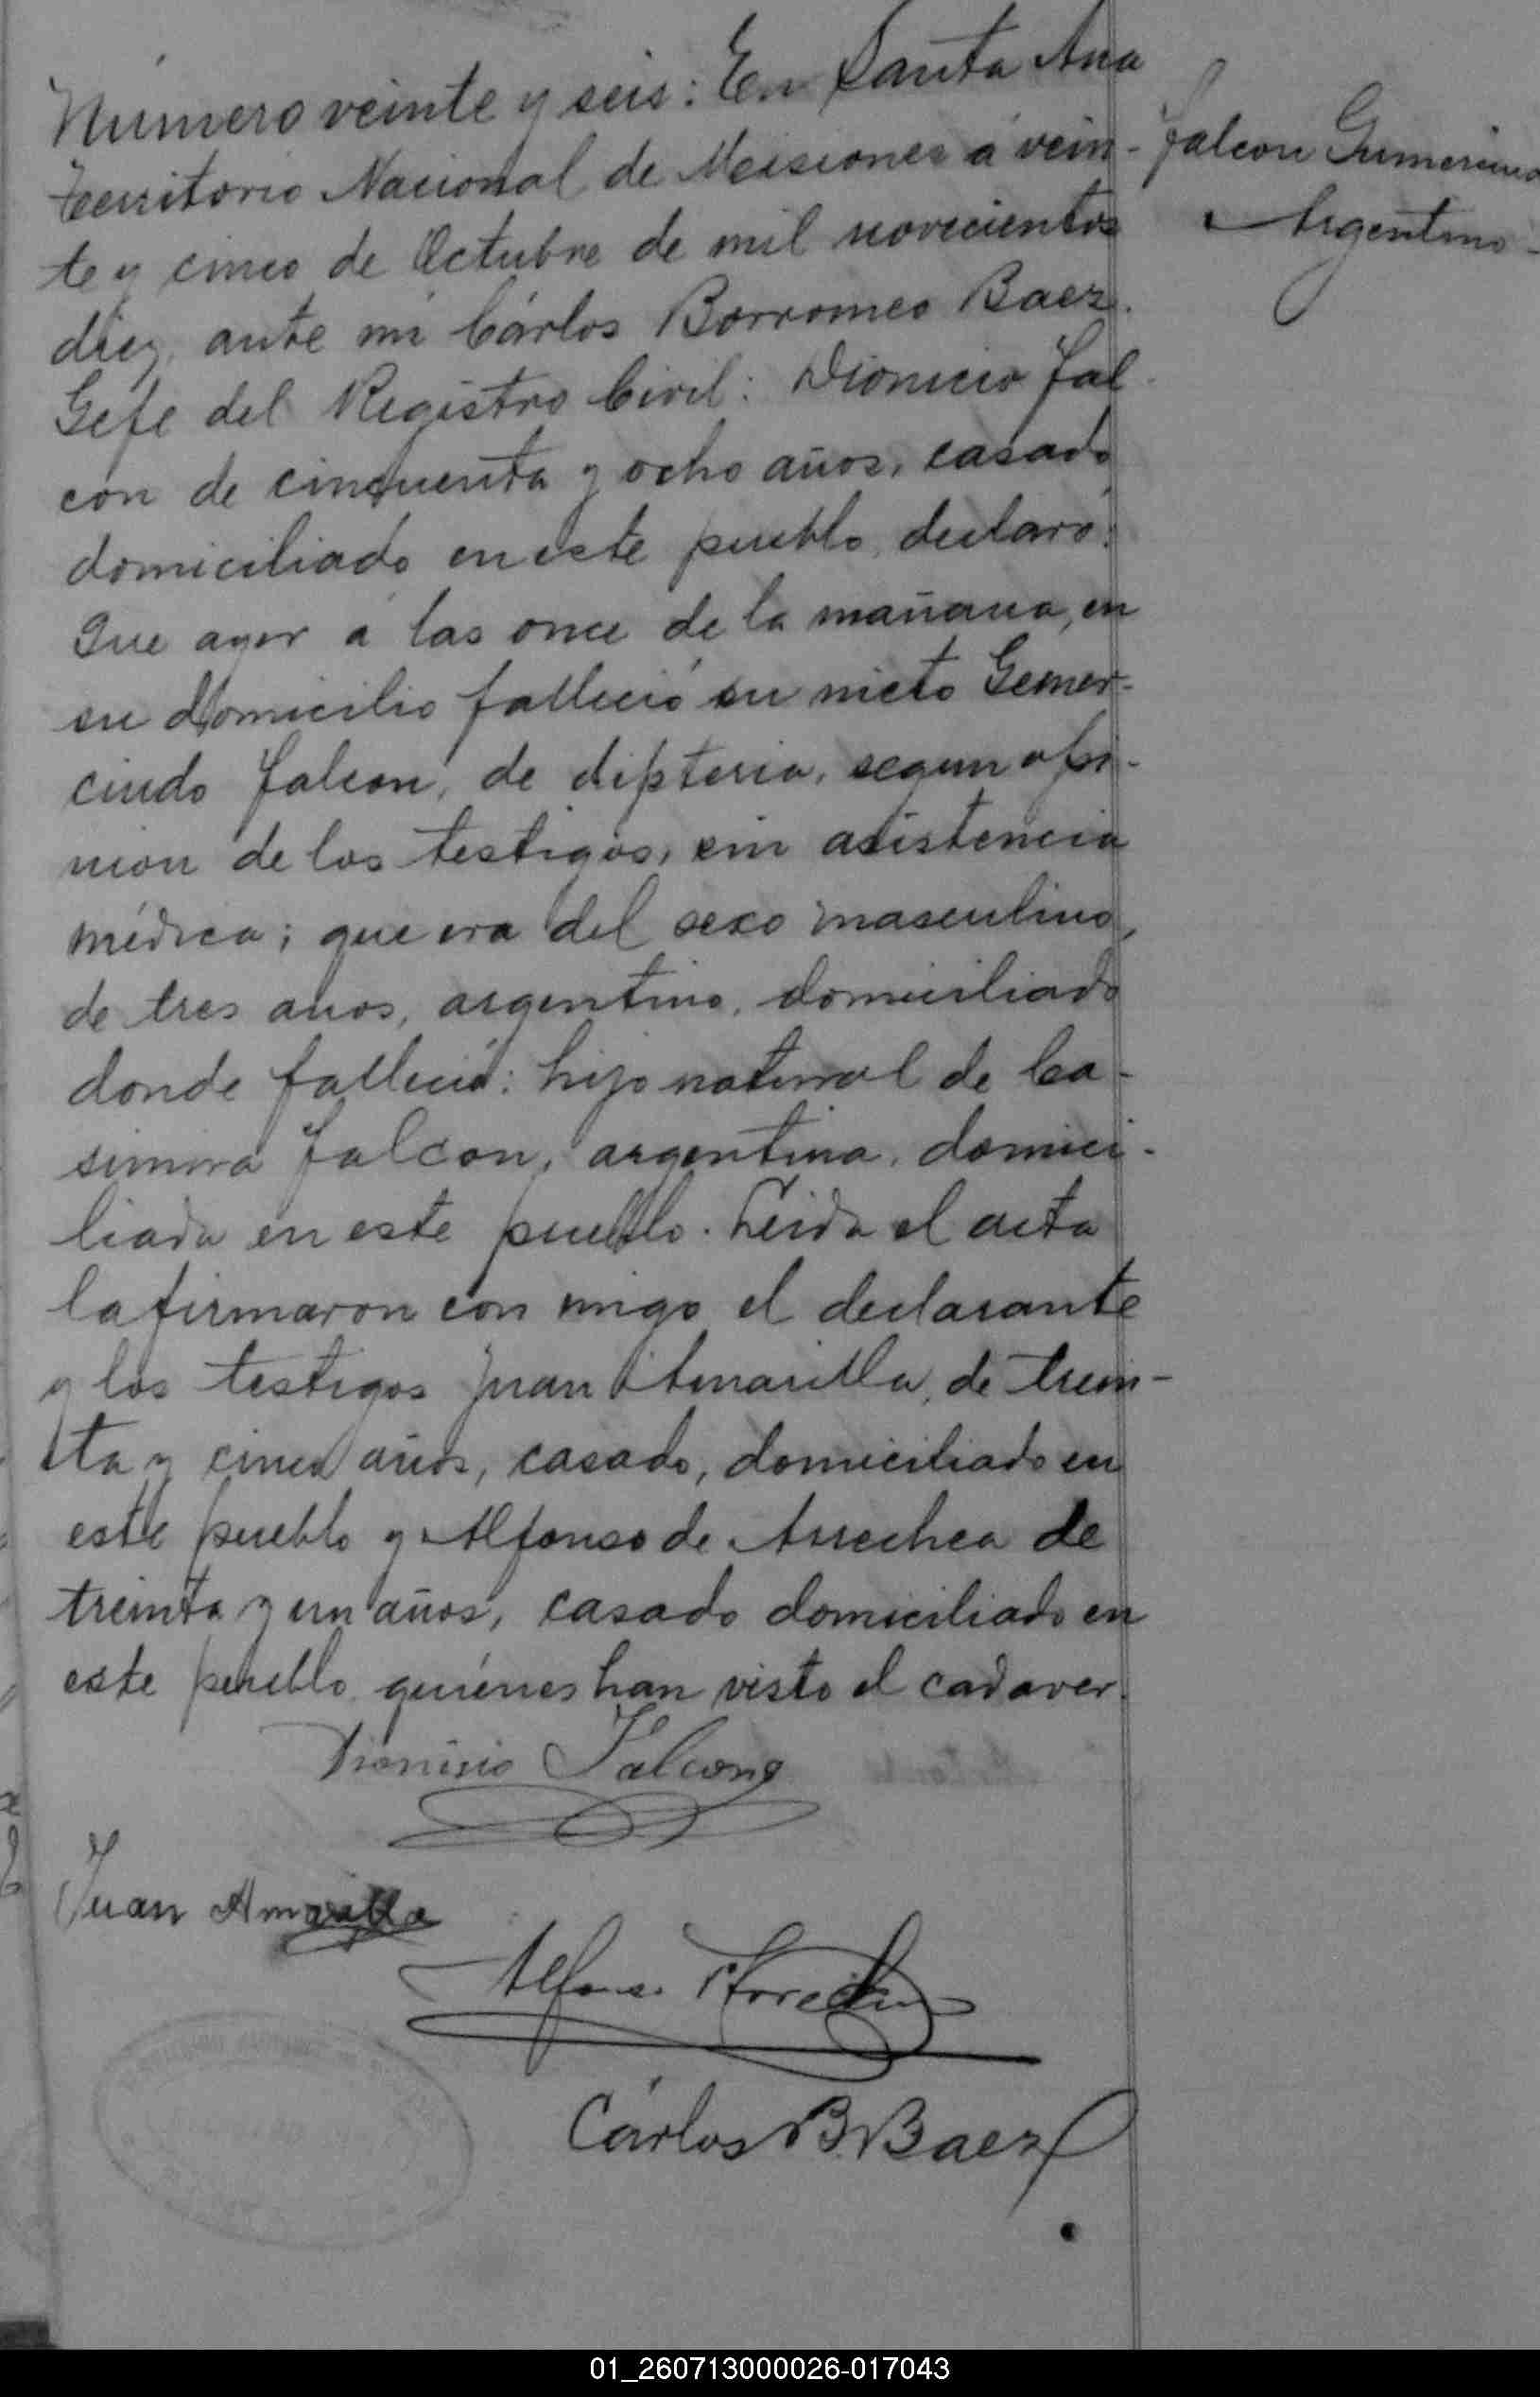 Número veinte y seis: En Santa Ana
territorio Nacional de Misiones á vein-
te y cinco de Octubre de mil novecientos
diez, ante mi Cárlos Borromeo Baez.
Gefe del Registro Civil: Dionicio Fal-
con de cincuenta y ocho años, casado
domiciliado en este pueblo, declaró:
Que ayer á las once de la mañana, en
su domicilio falleció su nieto Gemer-
cindo Falcon, de dipteria, segun opi-
nion de los testigos, sin asistencia
médica; que era del sexo masculino,
de tres años, argentino, domiciliado
donde falleció: hijo natural de Ca-
simira Falcon, argentina, domici-
liada en este pueblo. Leida el acta
la firmaron con migo el declarante
y los testigos Juan Amarilla, de trein-
ta y cinco años, casado, domiciliado en
este pueblo y Alfonso de Arrechea de
treinta y un años, casado domiciliado en
este pueblo, quiénes han visto el cadaver.
Falcon
Argentino
Dionisio Falcon
Juan Amarilla
Alfonso
Cárlos B. Baez
01_260713000026-017043